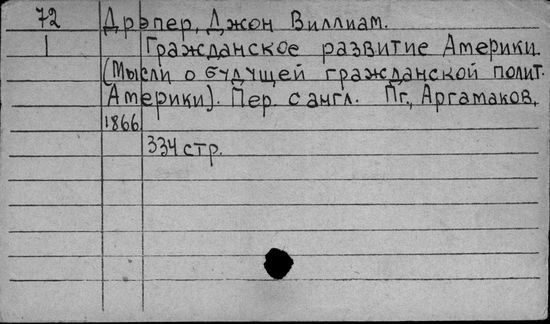 72 Дрэпер, Джон Виллиам.
1 Гражданское развитие Америки.
(Мысли о будущей гражданской полит.
Америки). Пер. с англ. Пг., Аргамаков,
1866
334 стр.